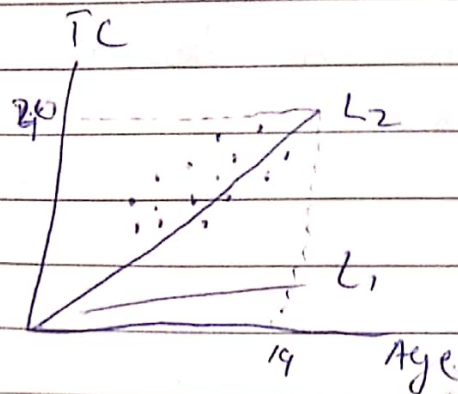 TC
L2
L1
19
Age